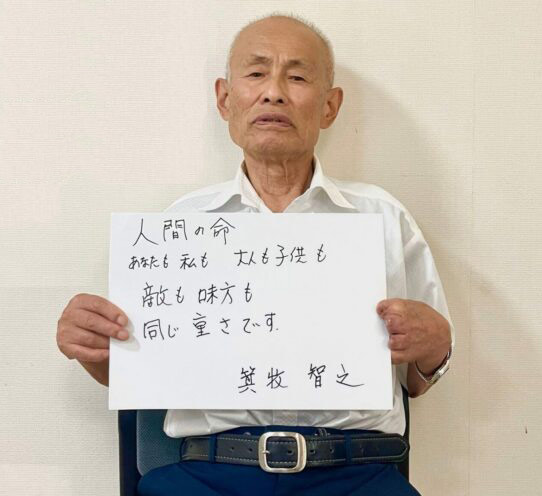 人間の命
あなたも 私も 大人も子供も
敵も 味方も
同じ 重さです.
箕牧 智之